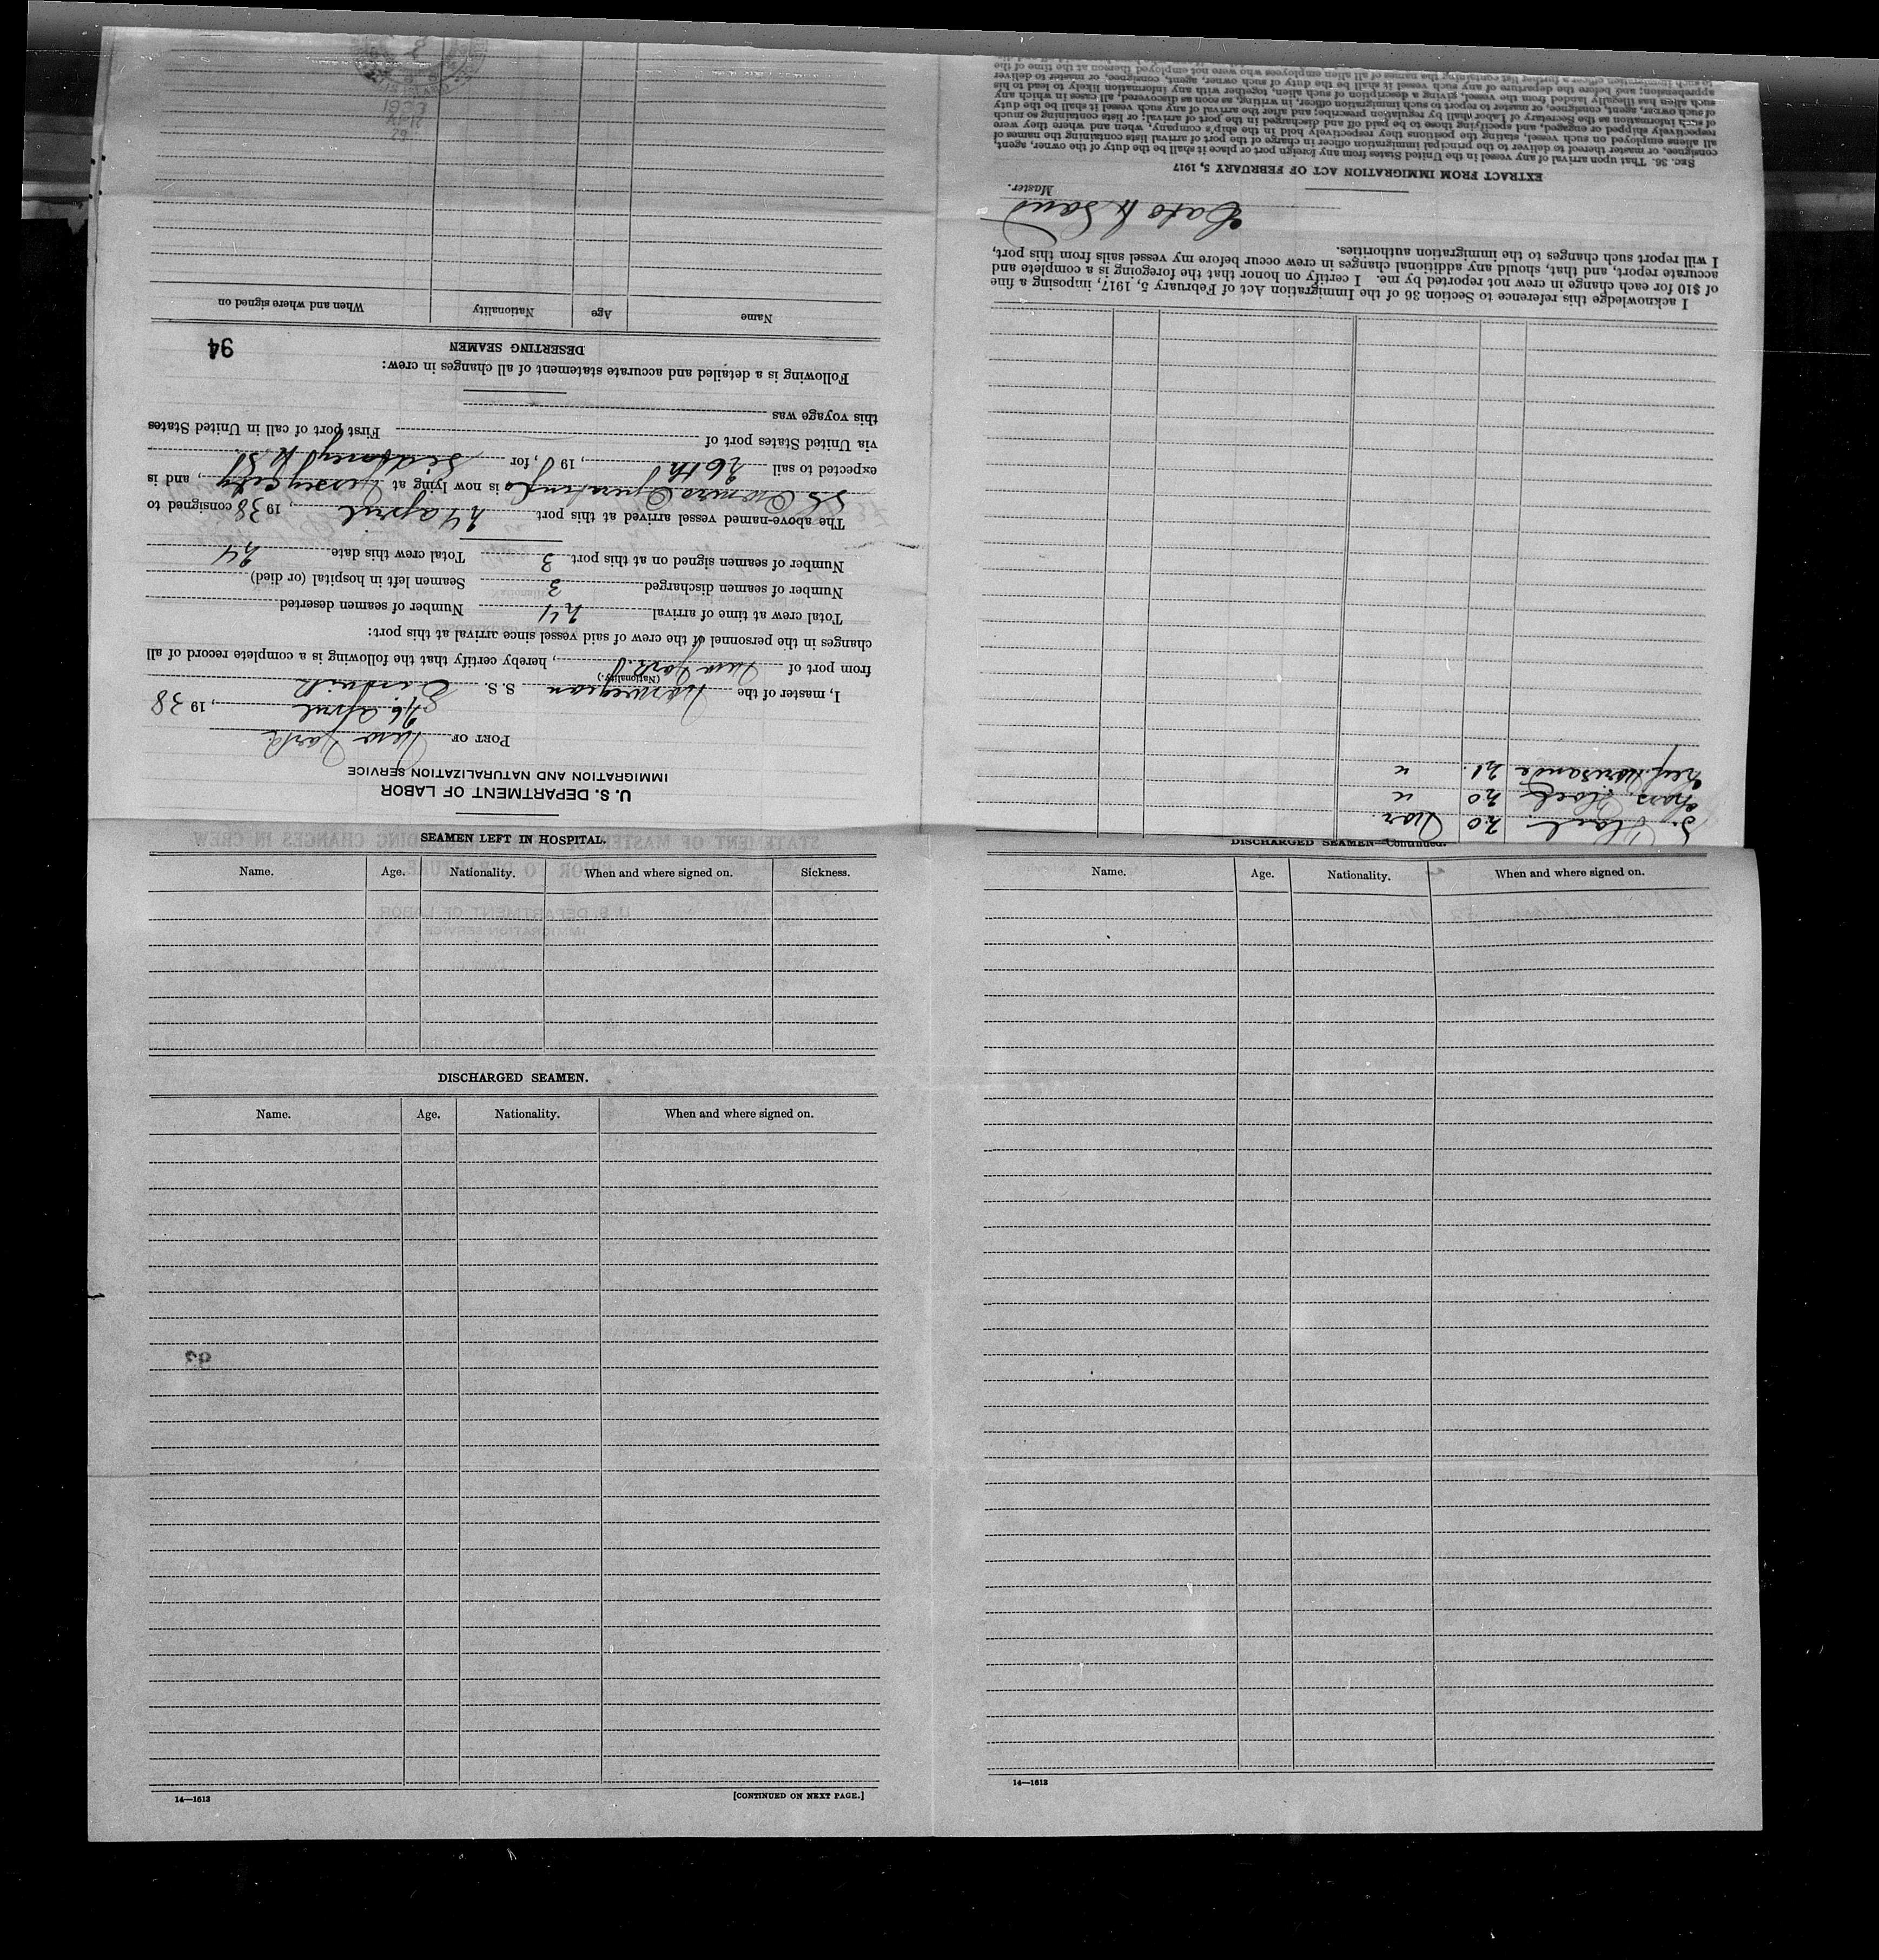 U. S. DEPARTMENT OF LABOR
IMMIGRATION AND NATURALIZATION SERVICE
PORT OF New York
26 April, 1938
I, master of the Norwegian S. S.
(Nationality.)
from port of New York, hereby certify that the following is a complete record of all
changes in the personnel of the crew of said vessel since arrival at this port:
Total crew at time of arrival 24 Number of seamen deserted
Number of seamen discharged 3 Seamen left in hospital (or died)
Number of seamen signed on at this port 3 Total crew this date 24
The above-named vessel arrived at this port 24 April, 1938 consigned to
is now lying at Jersey City, and is
expected to sail 26th, 19, for
via United States port of First port of call in United States
this voyage was
Following is a detailed and accurate statement of all changes in crew:
DESERTING SEAMEN
94
Name Age Nationality When and where signed on
29
APR
20 Nor.
20 "
21. "
I acknowledge this reference to Section 36 of the Immigration Act of February 5, 1917, imposing a fine
of $10 for each change in crew not reported by me. I certify on honor that the foregoing is a complete and
accurate report, and that, should any additional changes in crew occur before my vessel sails from this port,
I will report such changes to the immigration authorities.
Master.
EXTRACT FROM IMMIGRATION ACT OF FEBRUARY 5, 1917
SEC. 36. That upon arrival of any vessel in the United States from any foreign port or place it shall be the duty of the owner, agent,
consignee, or master thereof to deliver to the principal immigration officer in charge of the port of arrival lists containing the names of
all aliens employed on such vessel, stating the positions they respectively hold in the ship's company, when and where they were
respectively shipped or engaged, and specifying those to be paid off and discharged in the port of arrival; or lists containing so much
of such information as the Secretary of Labor shall by regulation prescribe; and after the arrival of any such vessel it shall be the duty
of such owner, agent, consignee, or master to report to such immigration officer, in writing, as soon as discovered, all cases in which any
such alien has illegally landed from the vessel, giving a description of such alien, together with any information likely to lead to his
apprehension; and before the departure of any such vessel it shall be the duty of such owner, agent, consignee, or master to deliver
to such immigration officer a further list containing the names of all alien employees who were not employed thereon at the time of the
SEAMEN LEFT IN HOSPITAL.
Name. Age. Nationality. When and where signed on. Sickness.
DISCHARGED SEAMEN.
Name. Age. Nationality. When and where signed on.
14—1613 [CONTINUED ON NEXT PAGE.]
DISCHARGED SEAMEN—Continued.
Name. Age. Nationality. When and where signed on.
14—1613